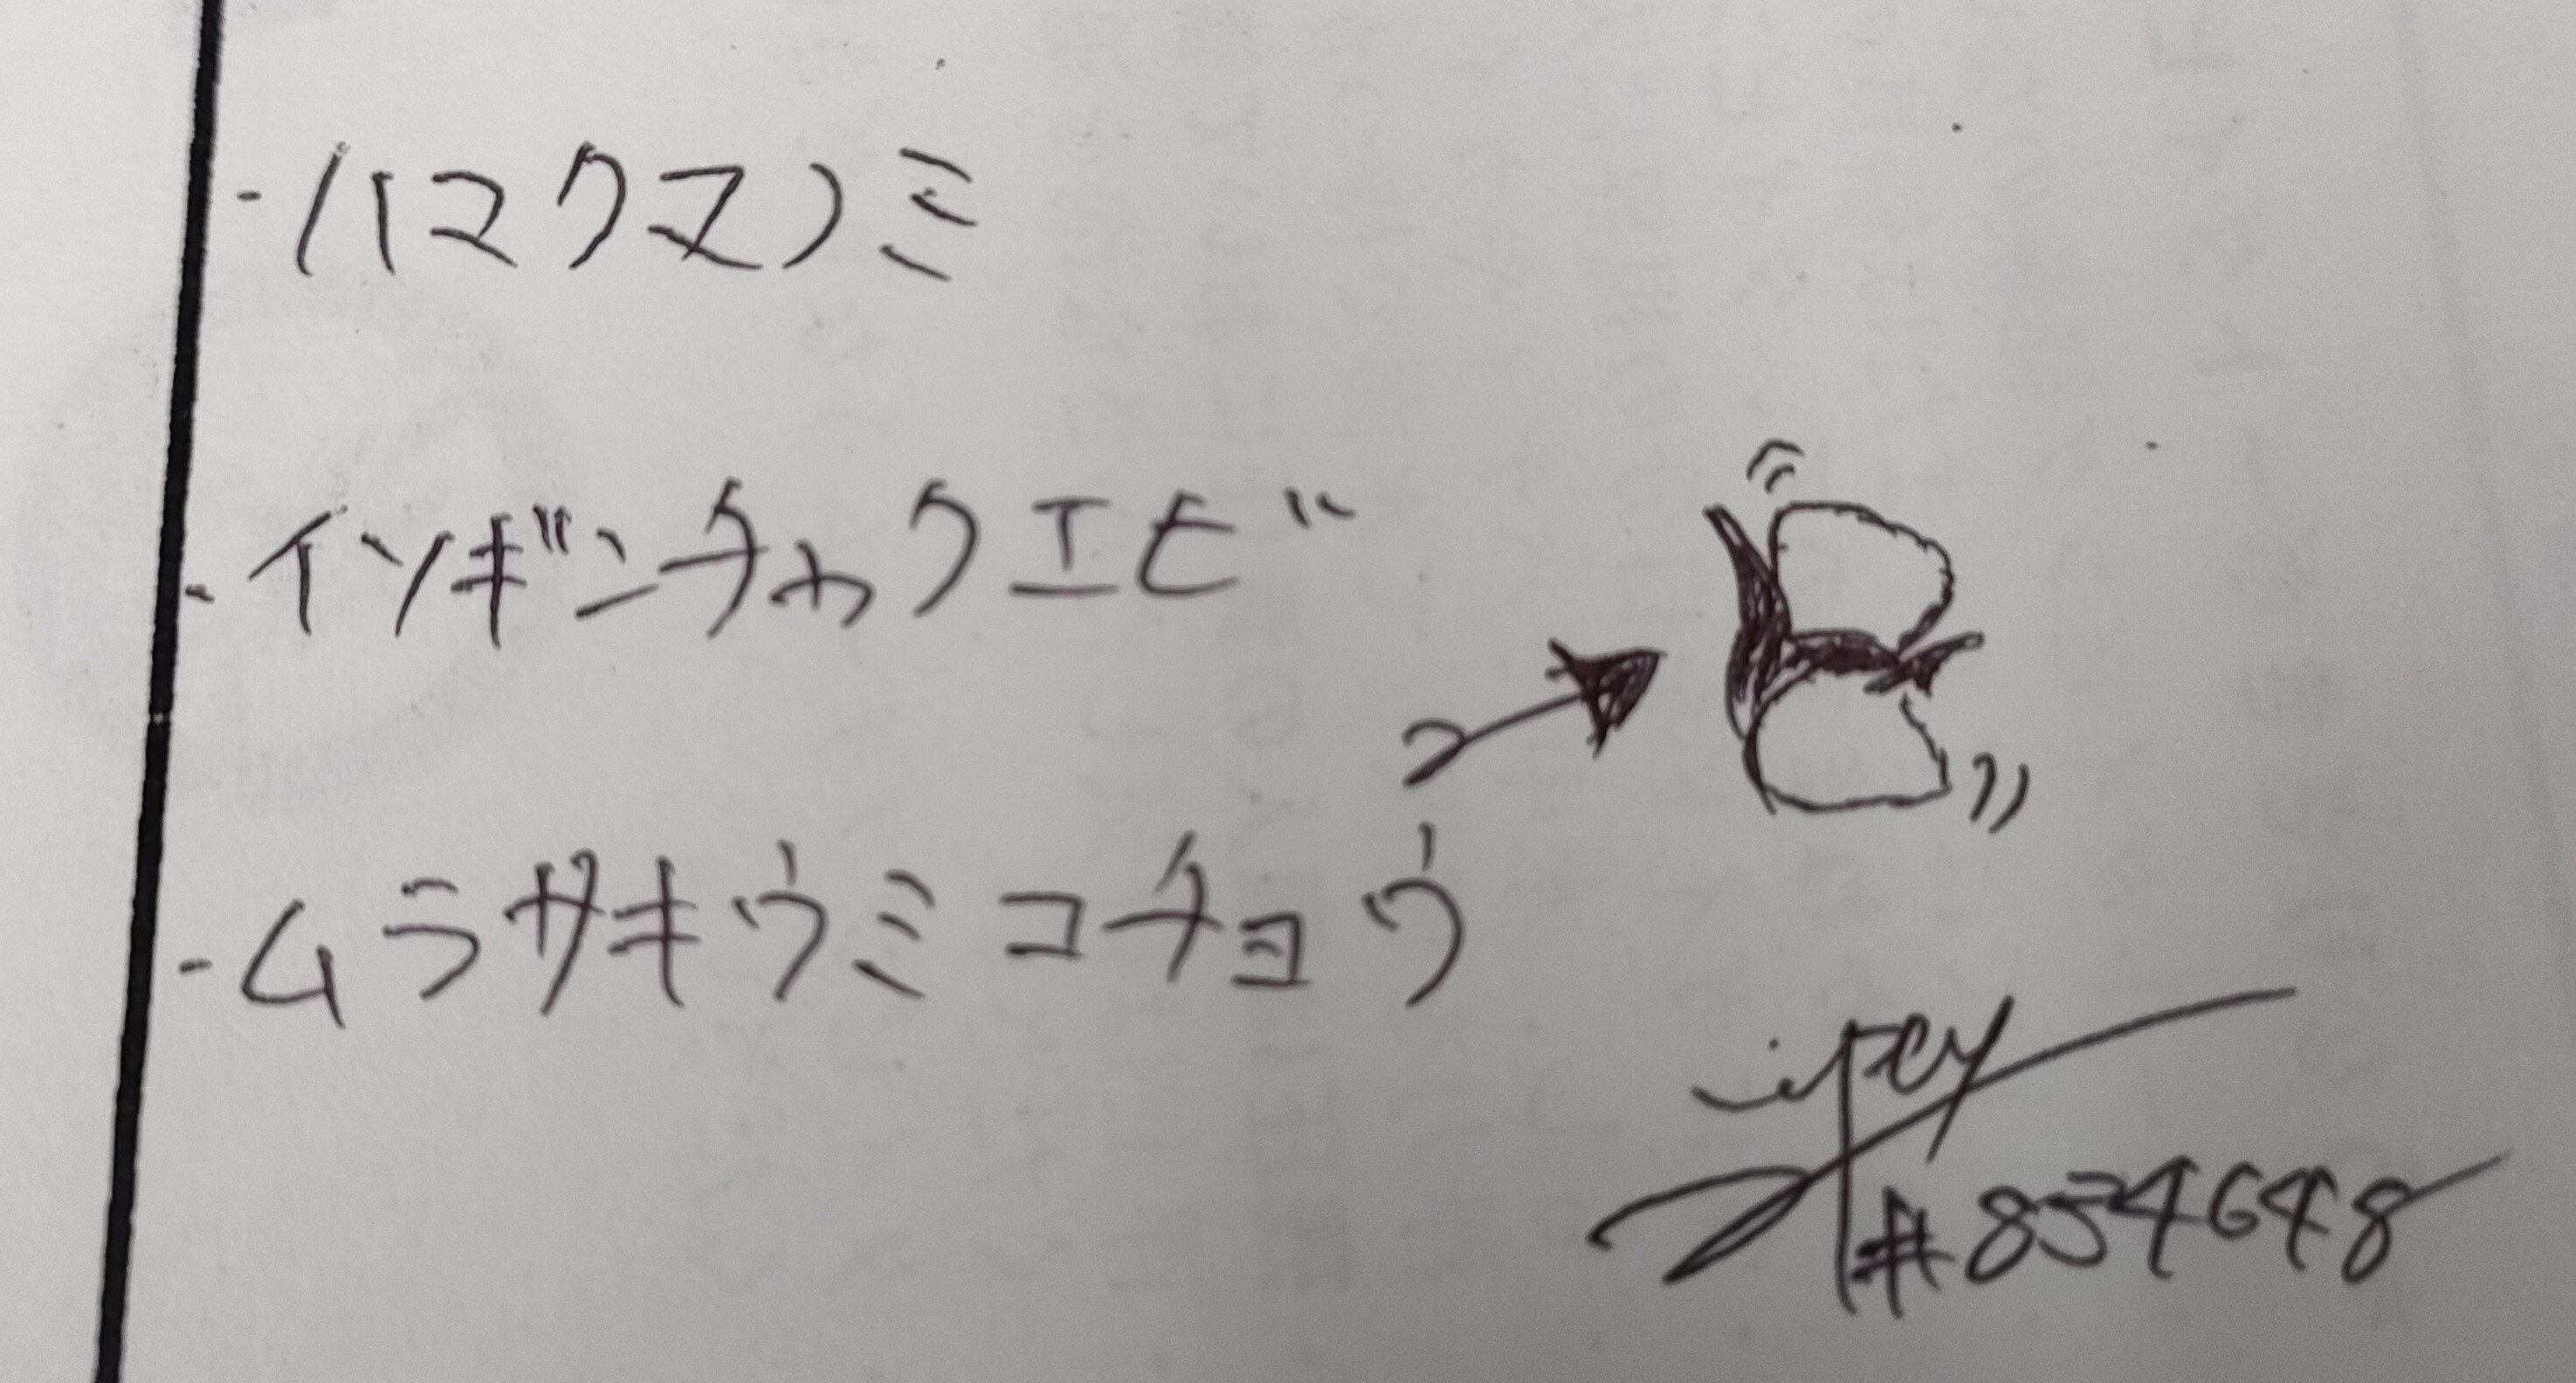 - ハマクマノミ
- イソギンチャクエビ
- ムラサキウミコチョウ
#854648